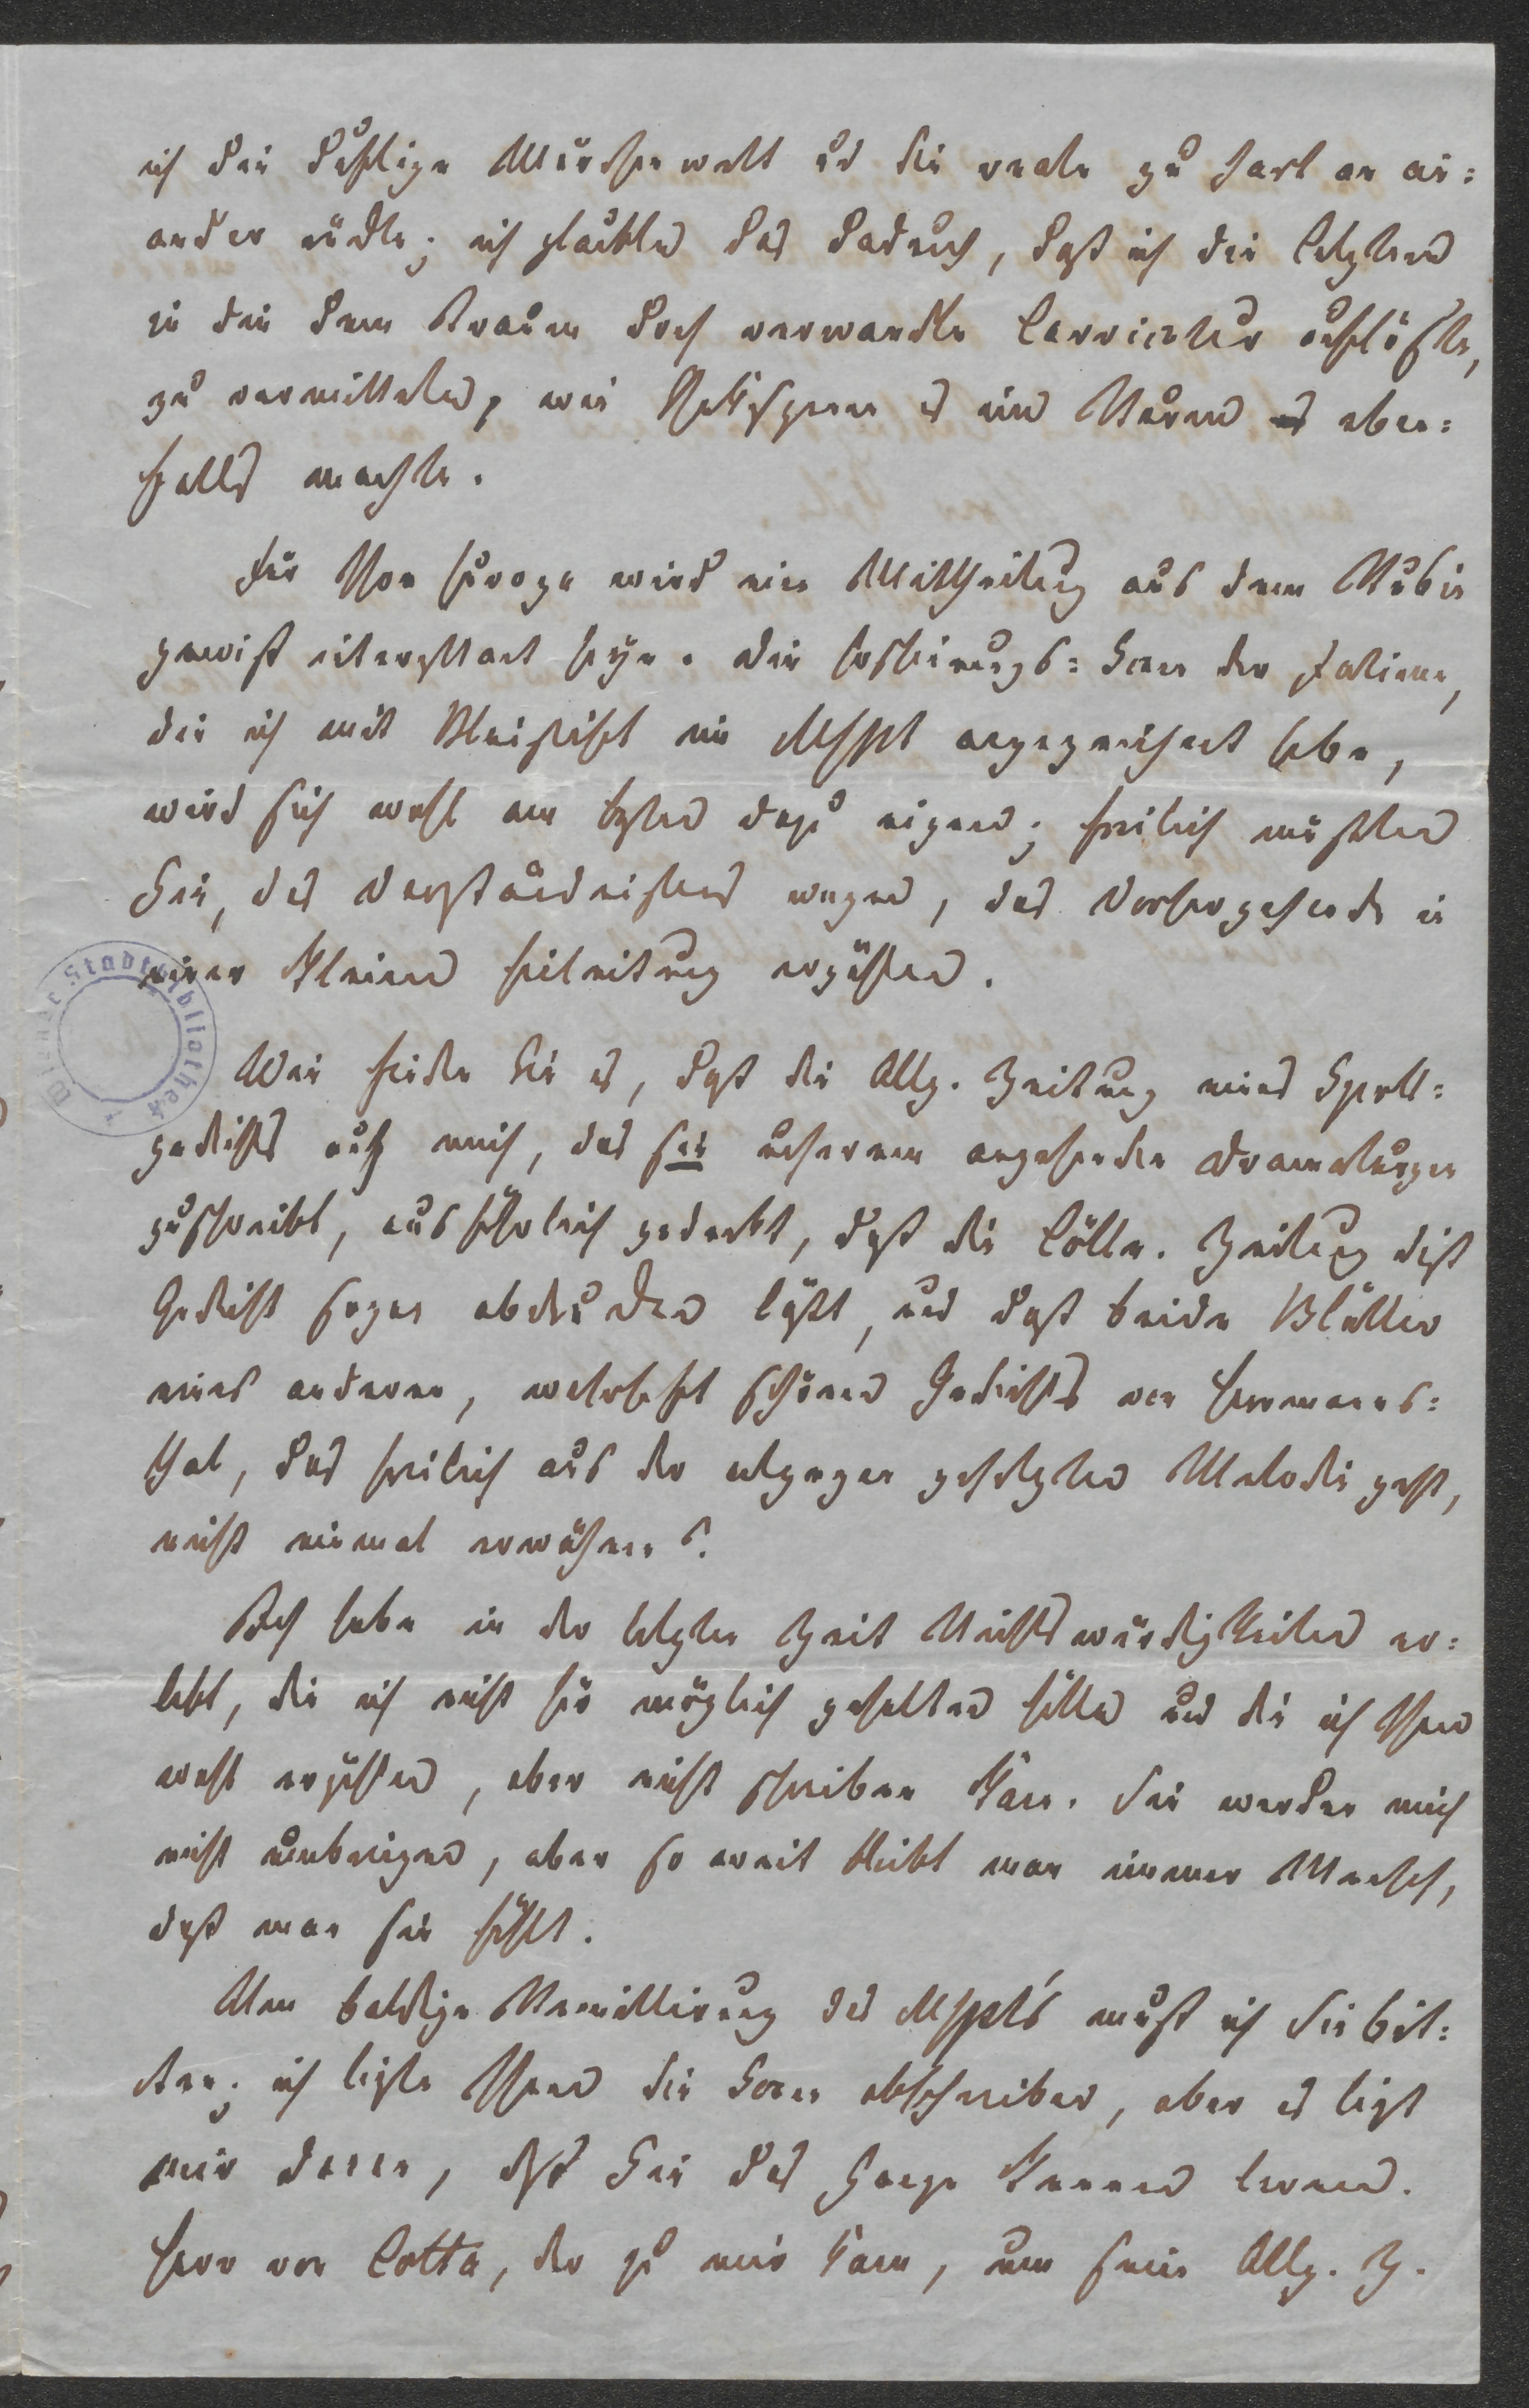 ich die duftige Märchenwelt und die reale zu hart an ein=
ander rückte; ich glaubte das dadurch, daß ich die letztere
in die dem Traum doch verwandte Carricatur auflöste,
zu vermitteln, wie Shakespeare es im Sturm es eben=
falls machte.
Für Ihre Europa wird eine Mittheilung aus dem Rubin
gewiß interessant seyn. Die Erscheinungs=Scene der Fatime,
die ich mit Bleistift im Mscpt angezeichnet habe,
wird sich wohl am besten dazu eignen; freilich müßten
Sie, des Verständnisses wegen, das Vorhergehende in
einer kleinen Einleitung erzählen.
Wie finden Sie es, daß die Allg. Zeitung eines Spott=
gedichts auf mich, das sie unserem angehenden Dramaturgen
zuschreibt, ausführlich gedenkt, daß die Cölln. Zeitung dieß
Gedicht sogar abdrucken läßt, und daß beide Blätter
eines anderen, wahrhaft schönen Gedichts von Hermanns=
thal, das freilich aus der entgegen gesetzten Melodie geht,
nicht einmal erwähnen?
Ich habe in der letzten Zeit Nichtswürdigkeiten er=
lebt, die ich nicht für möglich gehalten hätte und die ich Ihnen
wohl erzählen, aber nicht schreiben kann. Sie werden mich
nicht umbringen, aber so weit bleibt man immer Mensch,
daß man sie fühlt.
Um baldige Remittirung des Mscpts muß ich Sie bit=
ten; ich ließe Ihnen die Scene abschreiben, aber es liegt
mir daran, daß Sie das Ganze kennen lernen.
Herr von Cotta, der zu mir kam, um seine Allg. Z.
Wiener Stadtbibliothek